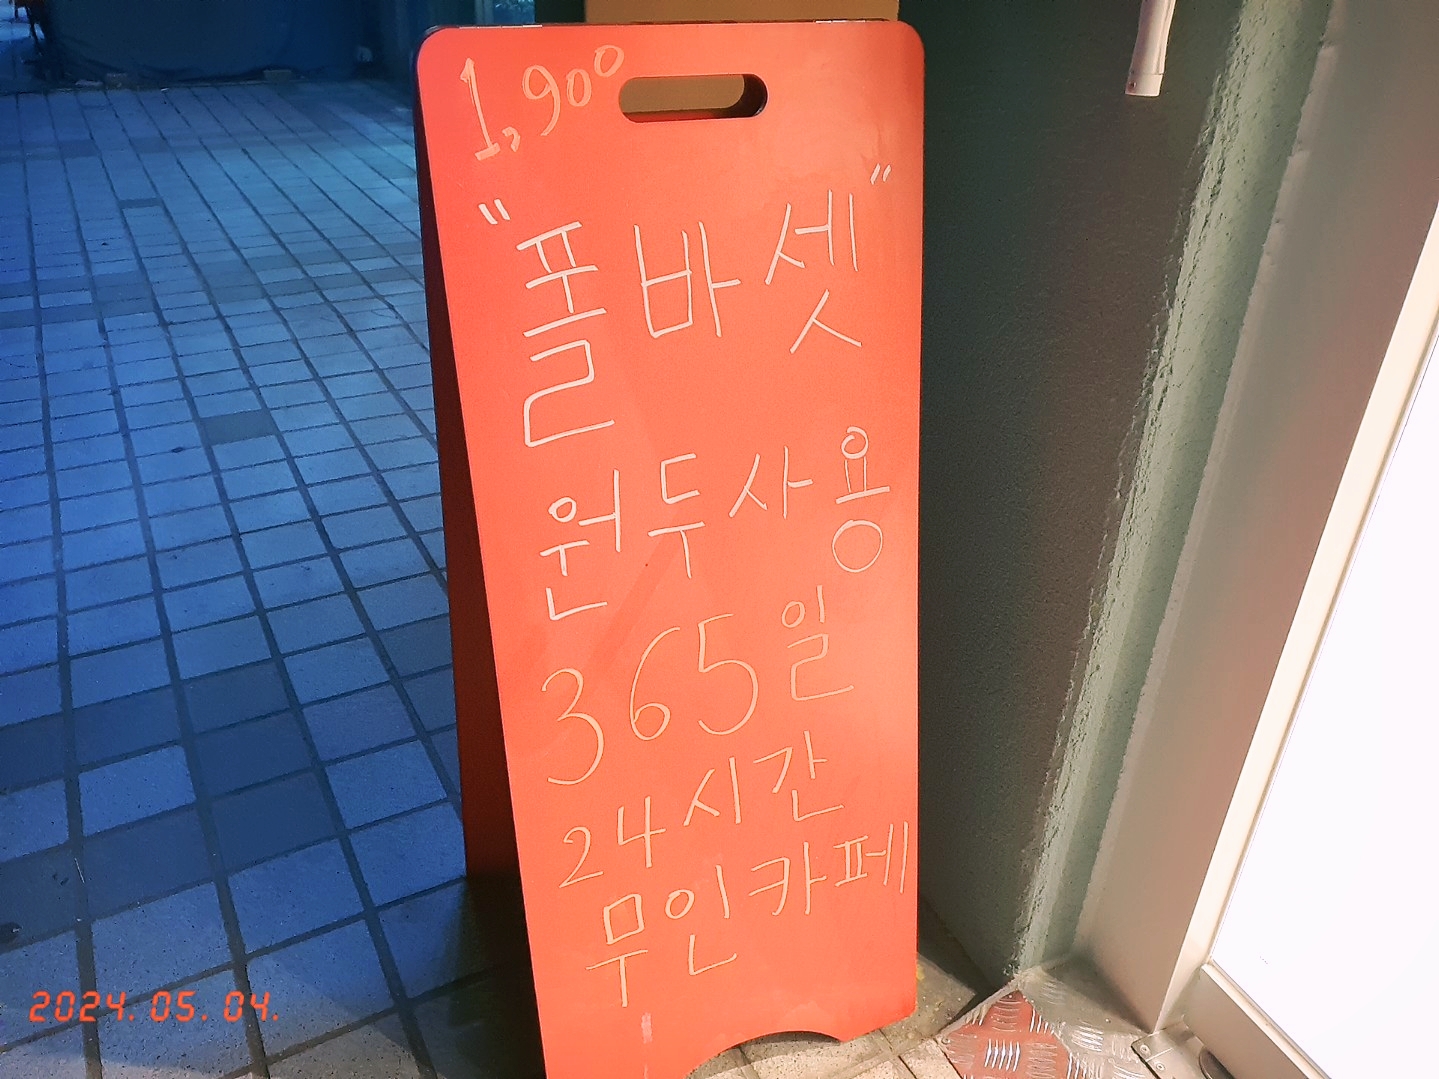 1,900
"폴바셋"
원두사용
365일
24시간
무인카페
2024.05.04.